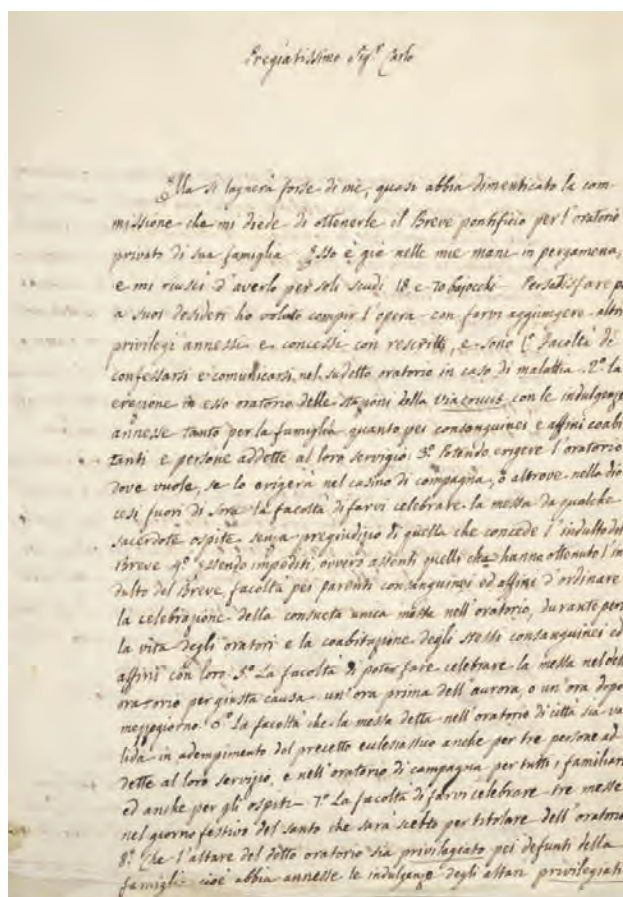 Pregiatissimo Sig.r Carlo
Ella si lagnerà forse di me, quasi abbia dimenticato la com-
missione che mi diede di ottenerle il Breve pontificio per l'oratorio
privato di sua famiglia. Esso è già nelle mie mani in pergamena,
e mi riuscì d'averlo per soli scudi 18 e 70 bajocchi. Per satisfare
a suoi desideri ho voluto compir l'opera con farvi aggiungere altri
privilegi annessi e concessi con rescritti, e sono 1.° Facoltà di
confessarsi e comunicarsi nel sudetto oratorio in caso di malattia. 2.° La
erezione in esso oratorio delle stazioni della viacrucis con le indulgenze
annesse tanto per la famiglia quanto pei consanguinei e affini coabi
tanti e persone addette al loro servigio. 3.° Potendo erigere l'oratorio
dove vuole, se lo erigerà nel casino di campagna, o altrove nella dio
cesi fuori di Sora la facoltà di farvi celebrare la messa da qualche
sacerdote ospite senza pregiudizio di quella che concede l'indulto del
Breve 4.° Essendo impediti, ovvero assenti quelli che hanno ottenuto l'in
dulto del Breve, facoltà pei parenti consanguinei ed affini d'ordinare
la celebrazione della consueta unica messa nell'oratorio, durante però
la vita degli oratori e la coabitazione degli stessi consanguinei ed
affini con loro. 5.° La facoltà di poter fare celebrare la messa nel detto
oratorio per giusta causa un'ora prima dell'aurora, o un'ora dopo
mezzogiorno. 6.° La facoltà che la messa detta nell'oratorio di città sia va
lida in adempimento del precetto eclesiastico anche per tre persone ad
dette al loro servigio, e nell'oratorio di campagna per tutti i familiari
ed anche per gli ospiti. 7.° La facoltà di farvi celebrare tre messe
nel giorno festivo del santo che sarà scelto per titolare dell'oratorio
8.° Che l'altare del detto oratorio sia privilegiato pei defunti della
famiglia cioè abbia annesse le indulgenze degli altari privilegiati